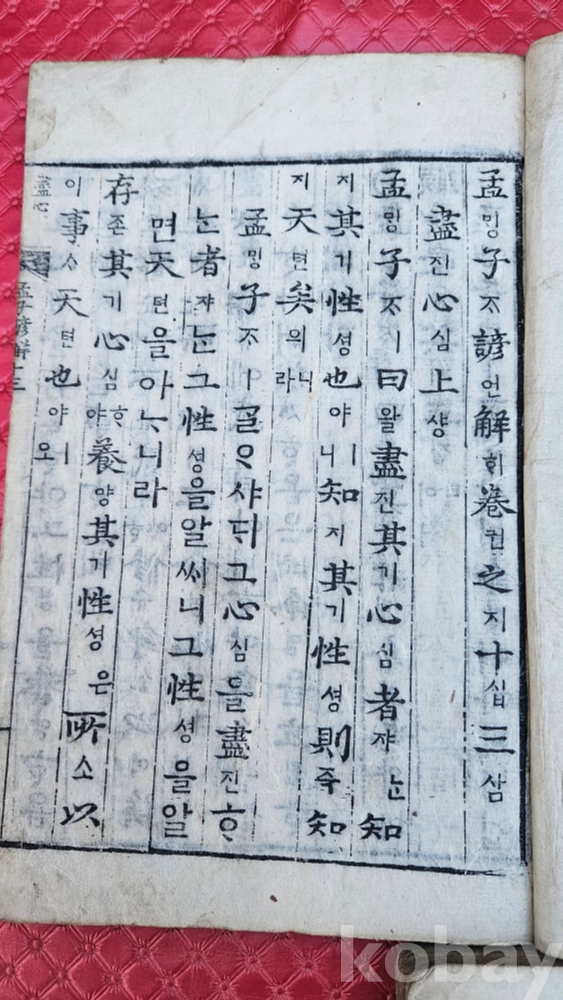 孟밍子ᄌᆞ諺언解ᄒᆡ卷권之지十십三삼
盡진心심上샹
孟밍子ᄌᆞㅣ曰왈盡진其기心심者쟈ᄂᆞᆫ知
지其기性셩也야ㅣ니知지其기性셩則즉知
지天텬矣의니라
孟밍子ᄌᆞㅣᄀᆞᆯᄋᆞ샤ᄃᆡ그心심을盡진ᄒᆞ
ᄂᆞᆫ者쟈ᄂᆞᆫ그性셩을알씨니그性셩을알
면天텬을아ᄂᆞ니라
存존其기心심ᄒᆞ야養양其기性셩은所소以
이事ᄉᆞ天텬也야ㅣ오
盡心
孟子諺解十三
kobay